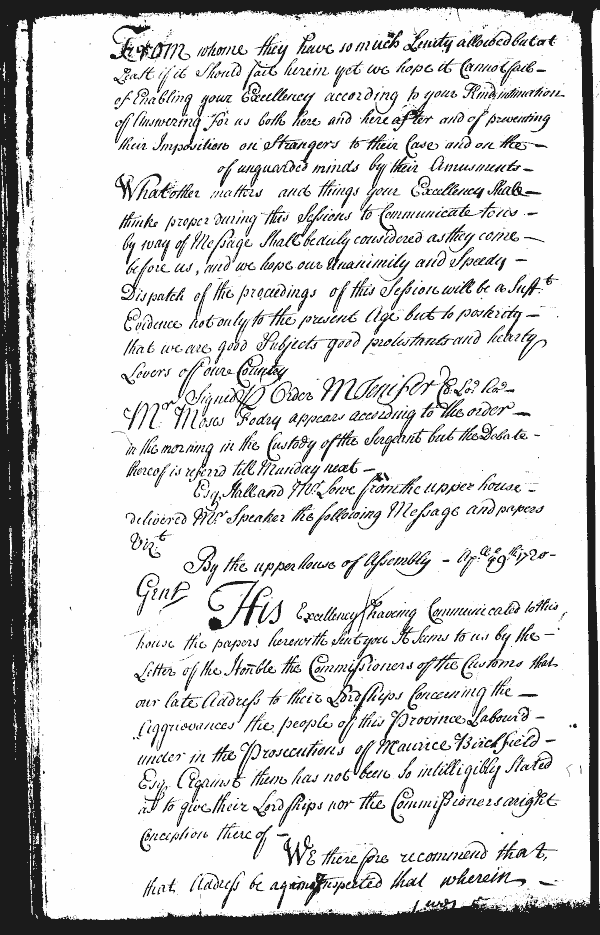 From whome they have so much Lenity allowed but at
Least if it Should fail herein yet we hope it Cannot fail –
of Enabling your Excellency according to your Kind intimation
of Answering for us both here and here after and of preventing
their Imposition on Strangers to their Case and on the –
of unguarded minds by their Amusments –
What other matters and things your Excellency Shall –
thinke proper during this Sessions to Communicate to us –
by way of Message Shall be duly considered as they come –
before us, and we hope our Unanimity and Speedy –
Dispatch of the proceedings of this Session will be a Suff.t
Evidence not only to the present Age but to posterity –
that we are good Subjects good protestants and hearty
Lovers of oure Country
Signed p Order M Jenifer Cl. Lo. Ho. –
Mr. Moses Fodry appears according to the order –
in the morning in the Custody of the Sergeant but the Debate –
thereof is referrd till Munday next –
Esq. Hall and Mr. Lowe from the upper house –
delivered Mr. Speaker the following Message and papers
Vizt.
By the upper house of Assembly – 1720 –
Gent
His Excellency having Communicated to this
house the papers herewith Sent you It Seems to us by the –
Letter of the Honble the Commissioners of the Customs that
our late Address to their Lordships Concerning the –
Aggrievances the people of this Province Labourd –
under in the Prosecutions of Maurice Birchfield –
Esq. Against them has not been So intilligibly Stated
as to give their Lordships nor the Commissioners a right
Conception there of –
We therefore recommend that,
that Address be again Inspected that wherein –